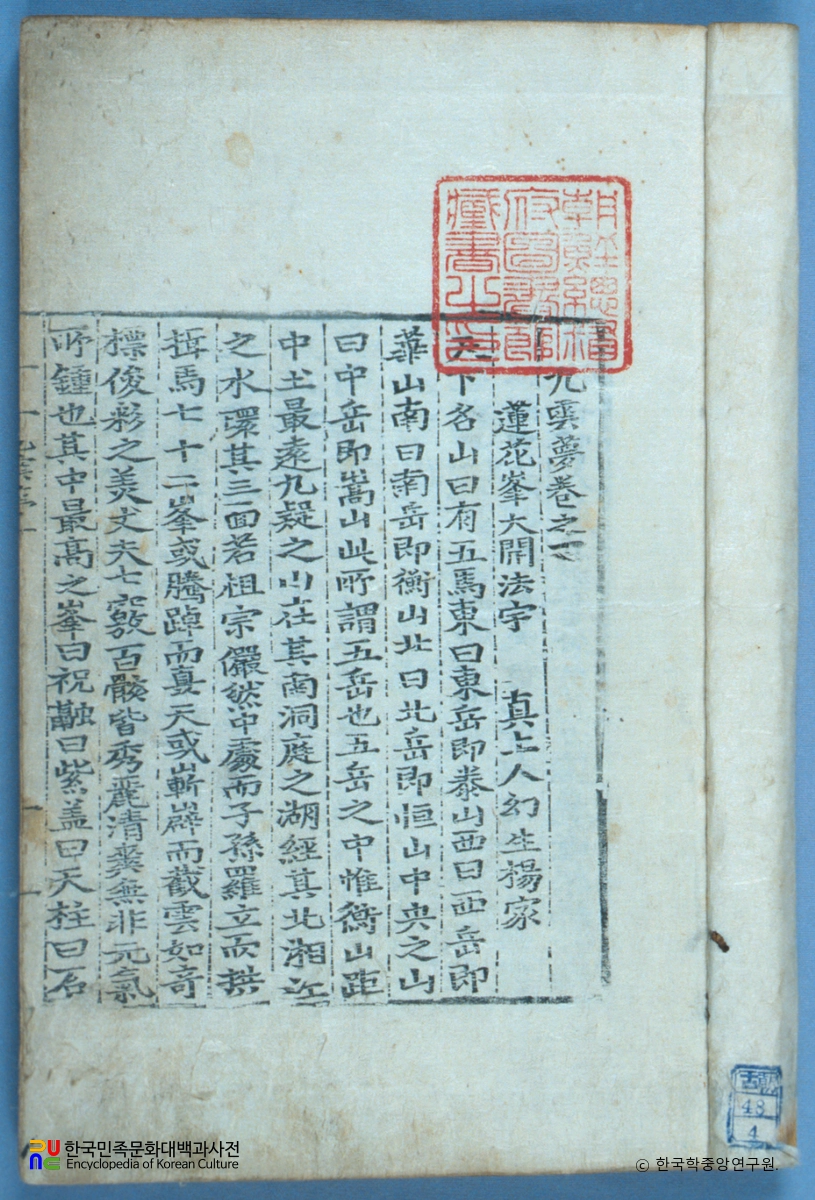 朝鮮總督
府圖書館
藏書之印
九雲夢卷之一
蓮花峯大開法宇 真上人幻生楊家
天下名山曰有五焉東曰東岳即泰山西曰西岳即
華山南曰南岳即衡山北曰北岳即恒山中央之山
曰中岳即嵩山此所謂五岳也五岳之中惟衡山距
中土最遠九疑之山在其南洞庭之湖經其北湘江
之水環其三面若祖宗儼然中處而子孫羅立而拱
揖焉七十二峯或騰踔而戛天或嶄嶭而截雲如奇
標俊彩之美丈夫七竅百骸皆秀麗清爽無非元氣
所鍾也其中最高之峯曰祝融曰紫盖曰天柱曰石
古朝
48
4
한국민족문화대백과사전
Encyclopedia of Korean Culture
© 한국학중앙연구원.